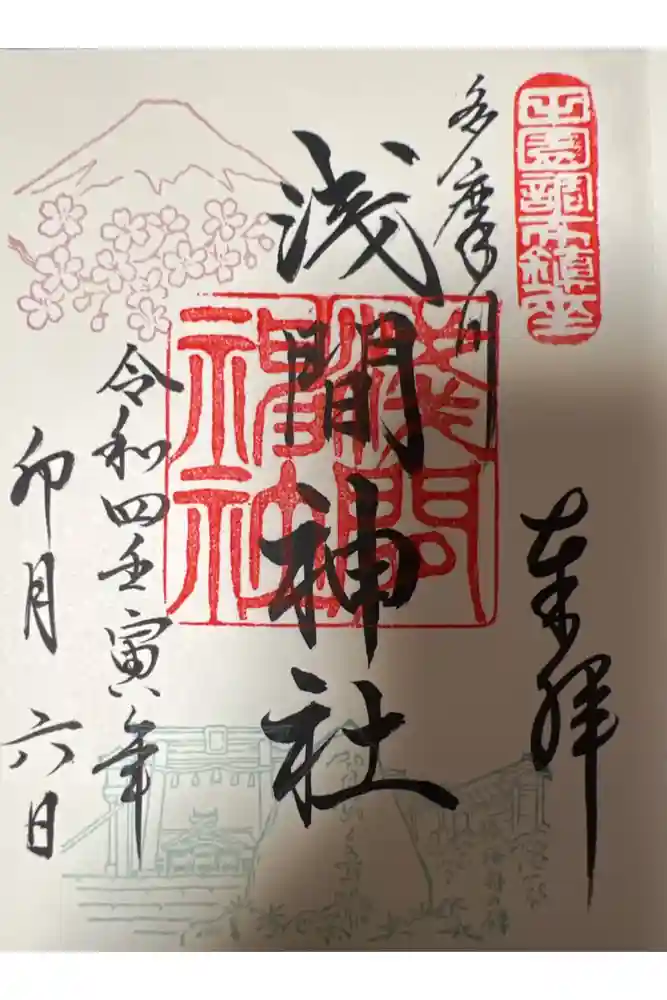 奉拝
田園調布鎮座
多摩川
浅間神社
淺間神社
令和四壬寅年
卯月六日